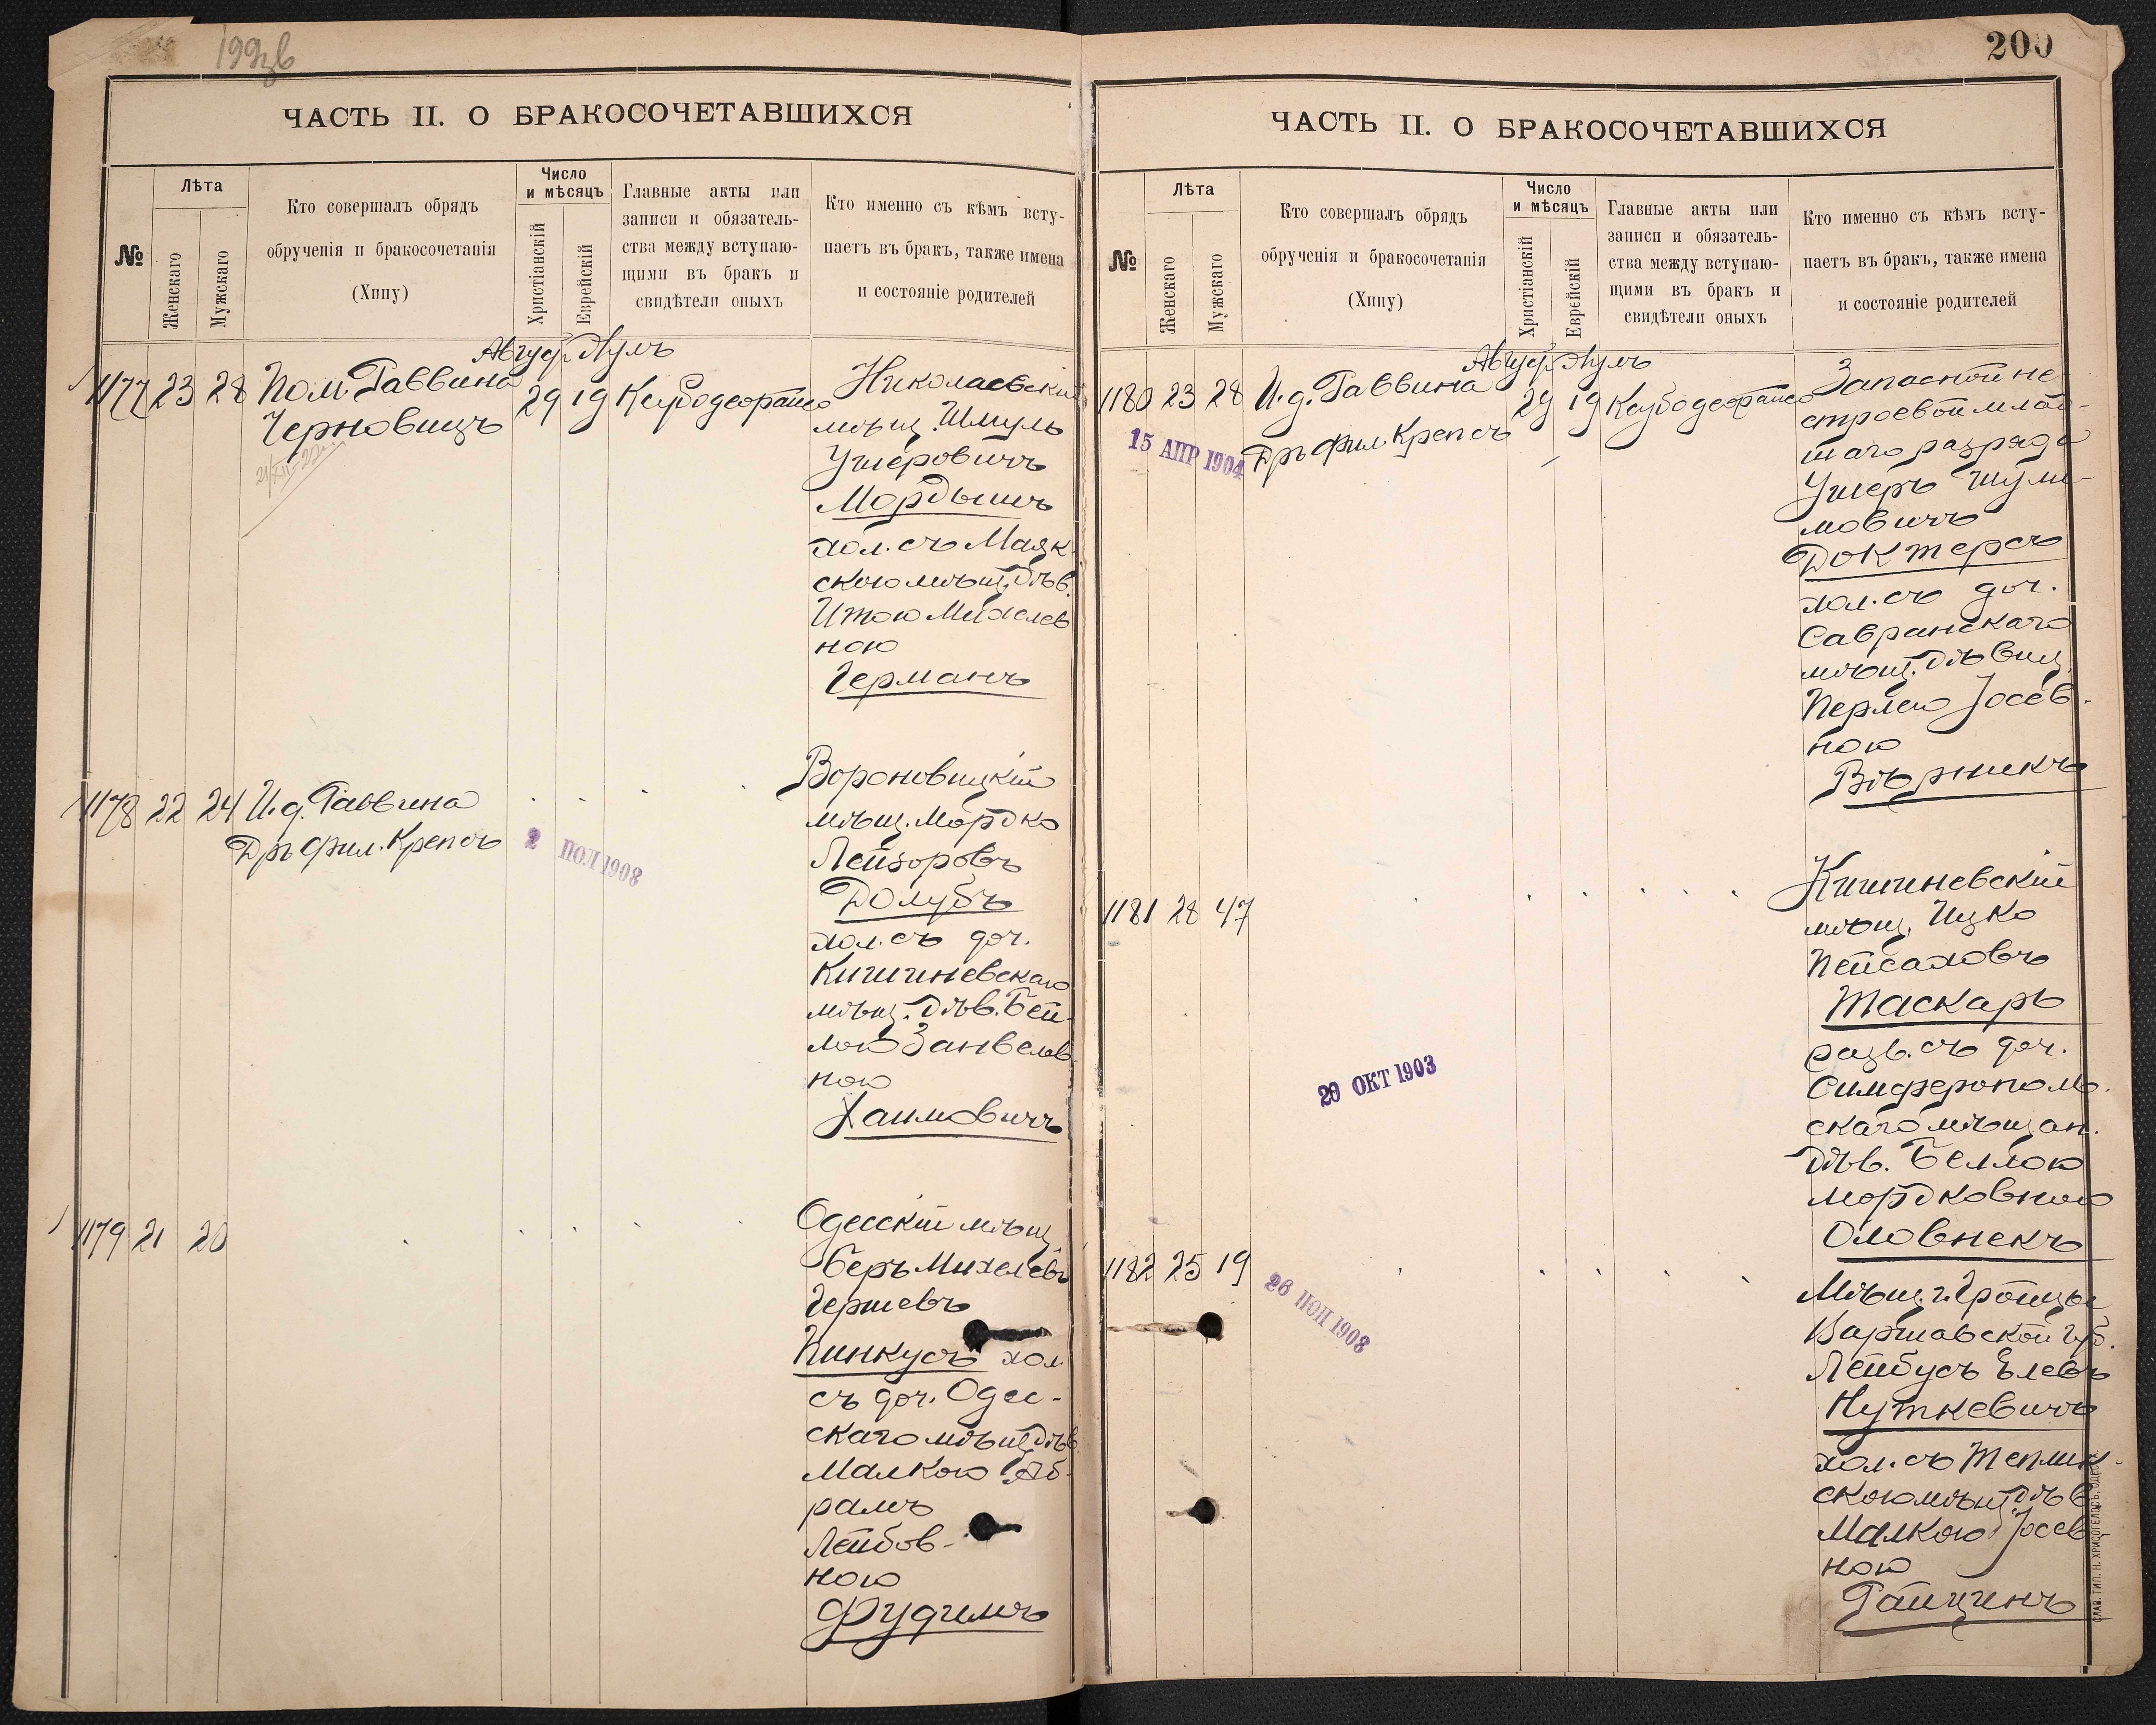 199зв
ЧАСТЬ II. О БРАКОСОЧЕТАВШИХСЯ
№
Лѣта
Женскаго
Мужскаго
Кто совершалъ обрядъ
обрученія и бракосочетанія
(Хипу)
Число
и мѣсяцъ
Христіанскій
Еврейскій
Главные акты или
записи и обязатель-
ства между вступаю-
щими въ бракъ и
свидѣтели оныхъ
Кто именно съ кѣмъ всту-
паетъ въ бракъ, также имена
и состояніе родителей
Авгус. Аулъ
1177 23 28 Пом. Раввина
Черновицъ
29 19
Николаевскій
мѣщ. Шмуль
Ушеровичъ
Мордышъ
хол. съ Маяк-
скою мѣщ. дѣв.
Итою Михелев
ною
Германъ
1178 22 24 И.д. Раввина
Дръ Фил. Крепсъ
2 ПОЛ 1908
Вороновицкій
мѣщ. Мордко
Лейзоровъ
Долубъ
хол. съ доч.
Кишиневскаго
мѣщ. дѣв. Бей-
лою Занвелов-
ною
Хаимовичъ
1179 21 20
Одесскій мѣщ.
Беръ Михелевъ
Гершевъ
Пинкусъ хол.
съ доч. Одес-
скаго мѣщ. дѣв.
Малкою Аб-
рамъ
Лейбов-
ною
Фудимъ
200
ЧАСТЬ II. О БРАКОСОЧЕТАВШИХСЯ
№
Лѣта
Женскаго
Мужскаго
Кто совершалъ обрядъ
обрученія и бракосочетанія
(Хипу)
Число
и мѣсяцъ
Христіанскій
Еврейскій
Главные акты или
записи и обязатель-
ства между вступаю-
щими въ бракъ и
свидѣтели оныхъ
Кто именно съ кѣмъ всту-
паетъ въ бракъ, также имена
и состояніе родителей
Авгус. Аулъ
1180 23 28 И.д. Раввина
Дръ Фил. Крепсъ
29 19
15 АПР 1904
Запасной не-
строевой млад-
шаго разряда
Ушеръ Шули-
мовичъ
Доктерсъ
хол. съ доч.
Савранскаго
мѣщ. дѣвиц.
Перлею Іосев-
ною
Вѣрникъ
1181 28 47
20 ОКТ 1903
Кишиневскій
мѣщ. Ицко
Пейсаховъ
Таскаръ
разв. съ доч.
Симферополь-
скаго мѣщан.
дѣв. Беллою
Мордковною
Оловнекъ
1182 25 19
26 ІЮН 1908
Мѣщ. г. Гройцы
Варшавской губ.
Лейбусъ Елевъ
Нуткевичъ
хол. съ Теплик-
скою мѣщ. дѣв.
Малкою Іосев
ною
Гайцинъ
СЛАВ. ТИП. Н. ХРИСОГЕЛОСЪ, ОДЕССА.